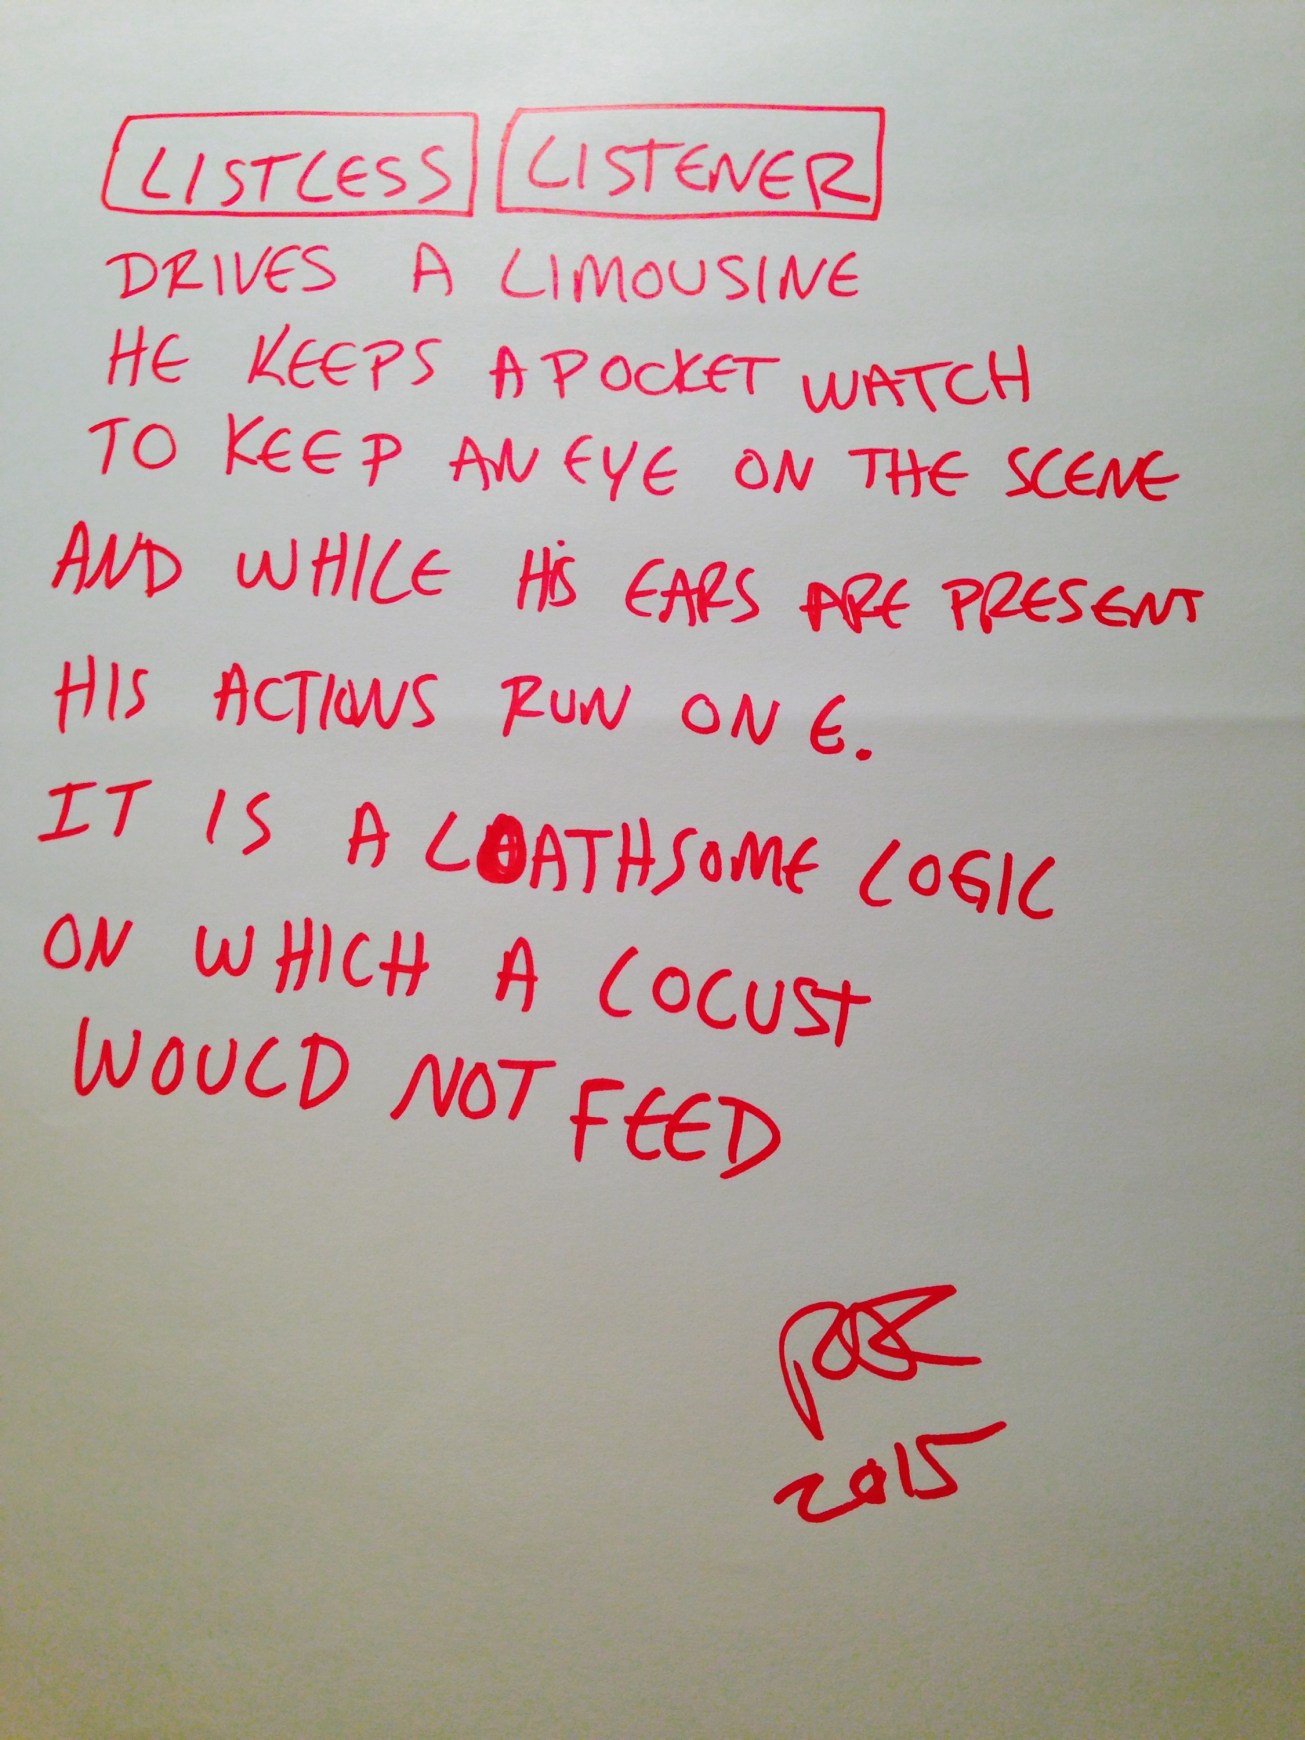 LISTLESS LISTENER
DRIVES A LIMOUSINE
HE KEEPS A POCKET WATCH
TO KEEP AN EYE ON THE SCENE
AND WHILE HIS EARS ARE PRESENT
HIS ACTIONS RUN ON E.
IT IS A LOATHSOME LOGIC
ON WHICH A LOCUST
WOULD NOT FEED
2015